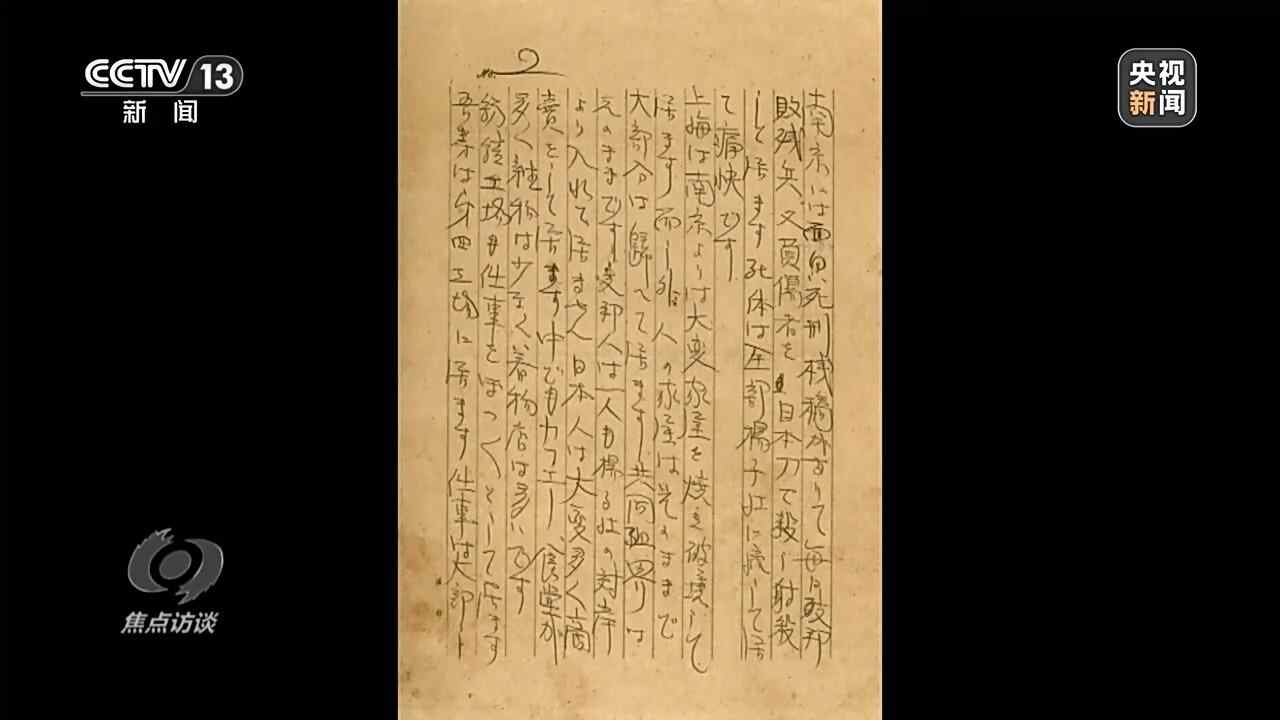 CCTV 13
新闻
央视
新闻
No 2
南京には面白い死刑桟橋がありて毎日支那
敗残兵又負傷者を日本刀で殺し射殺
して居ます死体は全部楊子江に流して居
て痛快です
上海は南京よりは大変家屋を焼き破壊して
居ます而し外人の家屋はそのままで
大部分は歸へて居ます共同租界は
元のままです支那人は一人も楊子江の対岸
より入れて居ません日本人は大変多く商
賣をして居ます中でもカフエー食堂が
多く物は少なく着物店は多いです
紡績工場も仕事をぼつ〱として居ます
吾等は第四工場に居ます仕事は大部
焦点访谈